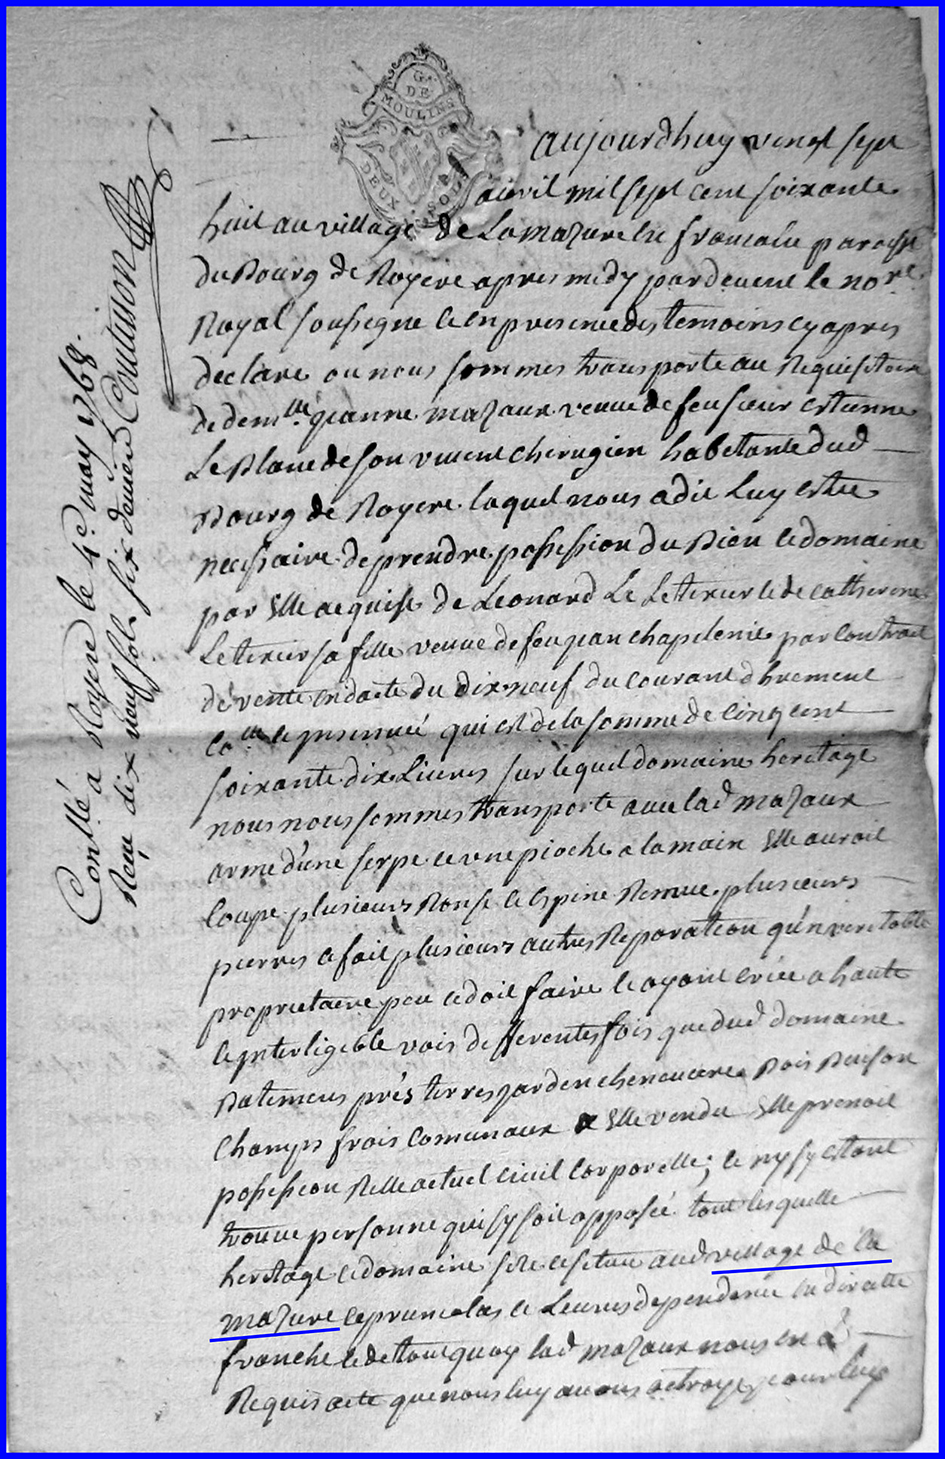 G. DE
MOULINS
DEUX SOLS
aujourdhuy vingt sept
avril mil sept cent soixante
huit au village de La mazure en franchise paroisse
du Bourg de Royere apres midy pardevent le nore
Royal soussigne et en presence des temoins cy apres
declare ou nous sommes transporte au Requisitoire
de demlle jeanne mazaux veuve de feu sieur estienne
Le Blanc de son vivent chirugien habetante dud
Bourg de Royere laquel nous a dit Luy estre
necessaire de prendre possession du Bien et domaine
par Elle acquise de Leonard Le Letexier et de catherine
Letexier sa fille veuve de feu jean chapelenie par Contrat
de vente en datte du dix neuf du courant dhuement
Collle et jnsinué qui est de la somme de Cinq cent
soixante dix Livres sur lequel domaine heritage
nous nous sommes transporte avec lad mazaux
arme d'une serpe et une pioche a la main Elle auroit
Coupe plusieurs Ronse et Epine Remue plusieurs
pierres et fait plusieurs autres Reparation qu'n veritable
proprietaire peu et doit faire et ayant criée a haute
et jnterligeble vois defferentes fois que dud domaine
Batemens près terres jarden cheneviere Bois Buison
Champs frois Comunaux a Elle vendu Elle prenoit
possession Relle actuel civil Corporelle; et ny sy estant
trouve personne qui sy soit opposée tout lesquelle
heritage et domaine sise et situe aud village de la
mazure et Leurs dependence en directte
franche et de tout quoy lad mazaux nous en a
Requis acte que nous luy avons octroye pour luy
Conllé a Royere le 4e may 1768.
Reçu dix neuf sols six denier Coutisson